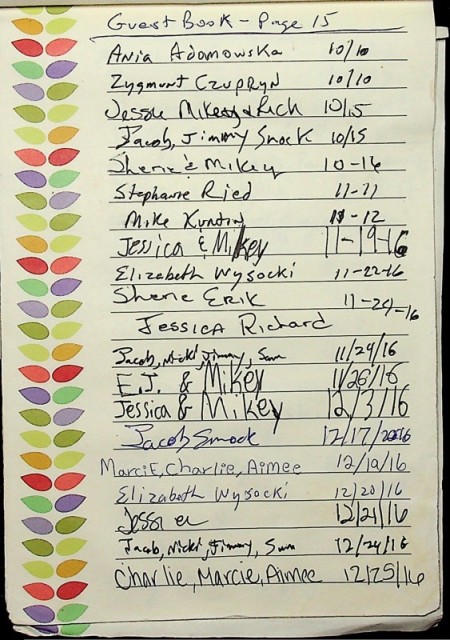 Guest Book - Page 15
Ania Adamowska 10/10
Zygmunt Czupryn 10/10
Jessie Mikey & Rich 10/15
Jacob, Jimmy Smock 10/15
Sherie & Mikey 10-16
Stephanie Ried 11-11
Mike 11-12
Jessica & Mikey 11-19-16
Elizabeth Wysocki 11-22-16
Sherie Erik 11-24-16
Jessica Richard
Jacob, Nicki, Jimmy, Sam 11/24/16
E.J. & Mikey 11/26/16
Jessica & Mikey 12/3/16
Jacob Smock 12/17/2016
Marcie, Charlie, Aimee 12/19/16
Elizabeth Wysocki 12/20/16
12/21/16
Jacob, Nicki, Jimmy, Sam 12/24/16
Charlie, Marcie, Aimee 12/25/16